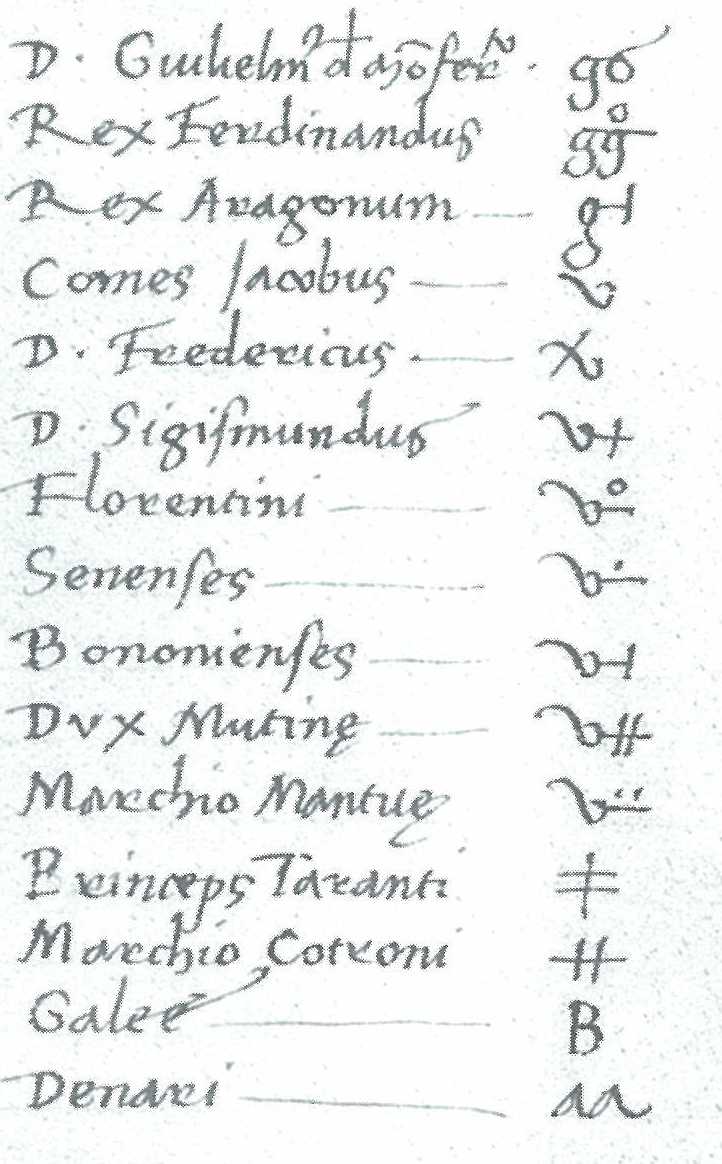 D. Guilhelm⁹ d
Rex Ferdinandus gg̊
Rex Aragonum
Comes Jacobus
D. Fredericus.
D. Sigismundus
Florentini
Senenses
Bononienses
Dvx Mutinę
Marchio Mantuę
Princeps Taranti
Marchio Cotroni
Galee B
Denari aa